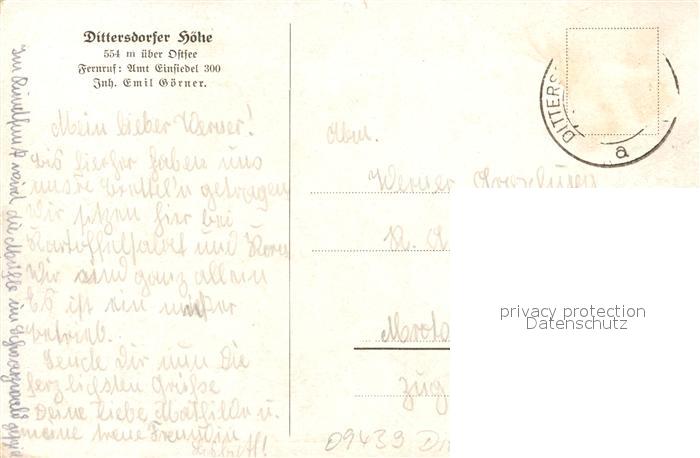 Dittersdorfer Höhe
554 m über Ostsee
Fernruf: Amt Einsiedel 300
Inh. Emil Görner.
Mein lieber Werner!
bis hierher haben uns
unsre getragen
Wir sitzen hier bei
Kartoffelsalat und
Wir sind ganz allein
Es ist ein
betrieb.
Sende Dir nun die
herzlichsten Grüße
Deine liebe Mathilde u.
meine treue Freundin
Im Rundfunk wird die Mühle im Schwarzwald
Abm.
Werner
DITTERS
a
privacy protection
Datenschutz
09439